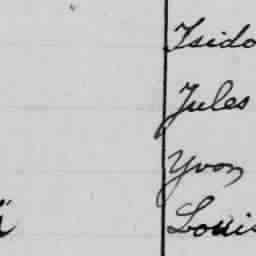 Isido
Jules
Yvon
Louis